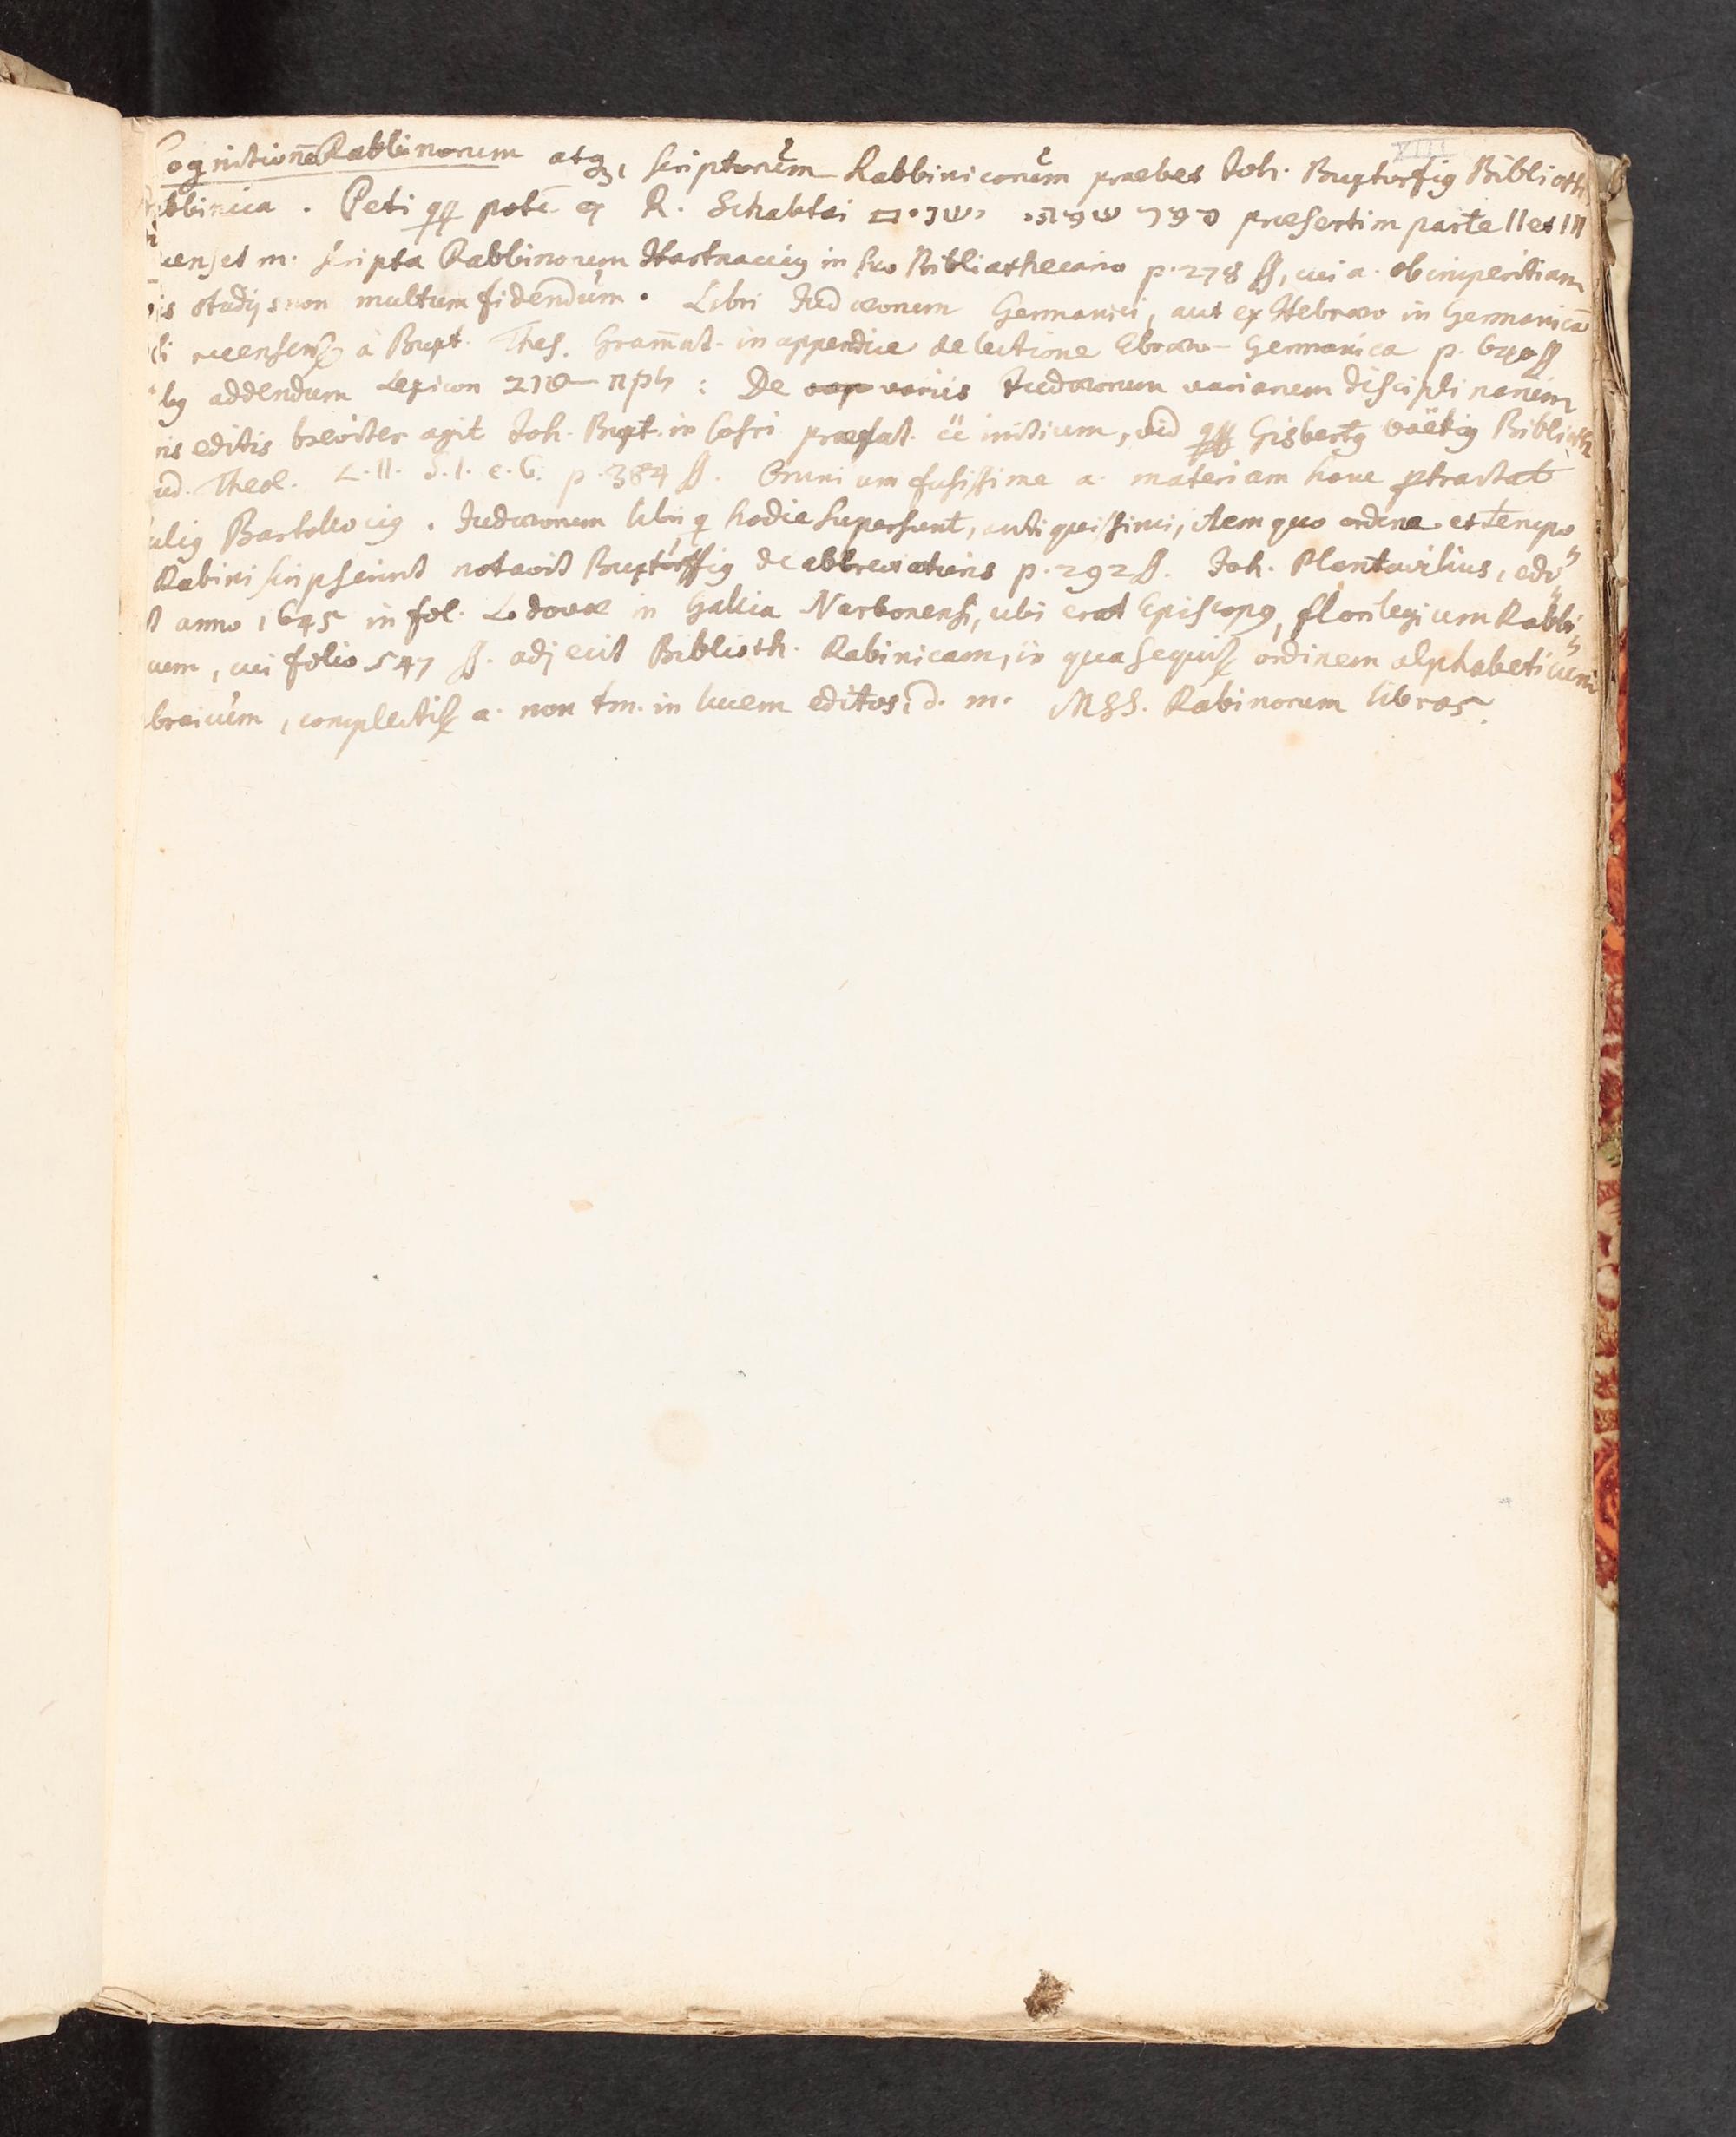 XIII
Cognitionē Rabbinorum atq, scriptorum Rabbinicorum praebet Joh. Buxtorfig Biblioth
Rabbinica. Peti qq potē ex R. Schabtai שפתי ישנים praesertim parte II et III
censet m. scripta Rabbinorum Hartnaccig in suo Bibliothecario p. 278 ff, cui a. ob imperitiam
is studijs non multum fidendum. Libri Judæorum Germanici, aut ex Hebræo in Germanicā
si recensenr à Buxt. Thes. Gram̄at. in appendice de lectione Ebræo-Germanica p.
by addendum Lexicon לקח טוב : De variis Judæorum variarum disciplinarum
ris editis breviter agit Joh. Buxt. in Cosri praefat. initium, vid qq Gisbertg Voëtig Biblioth
ud. Theol. L. II. S. I. c. 6. p. 384 ff. Omnium fusissime a. materiam hanc ptractat
ulig Bartoloccig. Judæorum libri q hodie supersunt, antiquissimi, item quo ordine et tempo"
Rabini scripserint notavit Buxtorffig de abbreviaturis p. 292 ff. Joh. Plantavitius, edi"
t anno 1645 in fol. Lodovæ in Gallia Narbonensi, ubi erat Episcopg, florilegium Rabbi"
cum, cui folio 547 ff. adjecit Biblioth. Rabinicam, in qua sequir ordinem alphabeticum
braicum, complectir a. non tm. in lucem editos, d. m. MSS. Rabinorum libros.